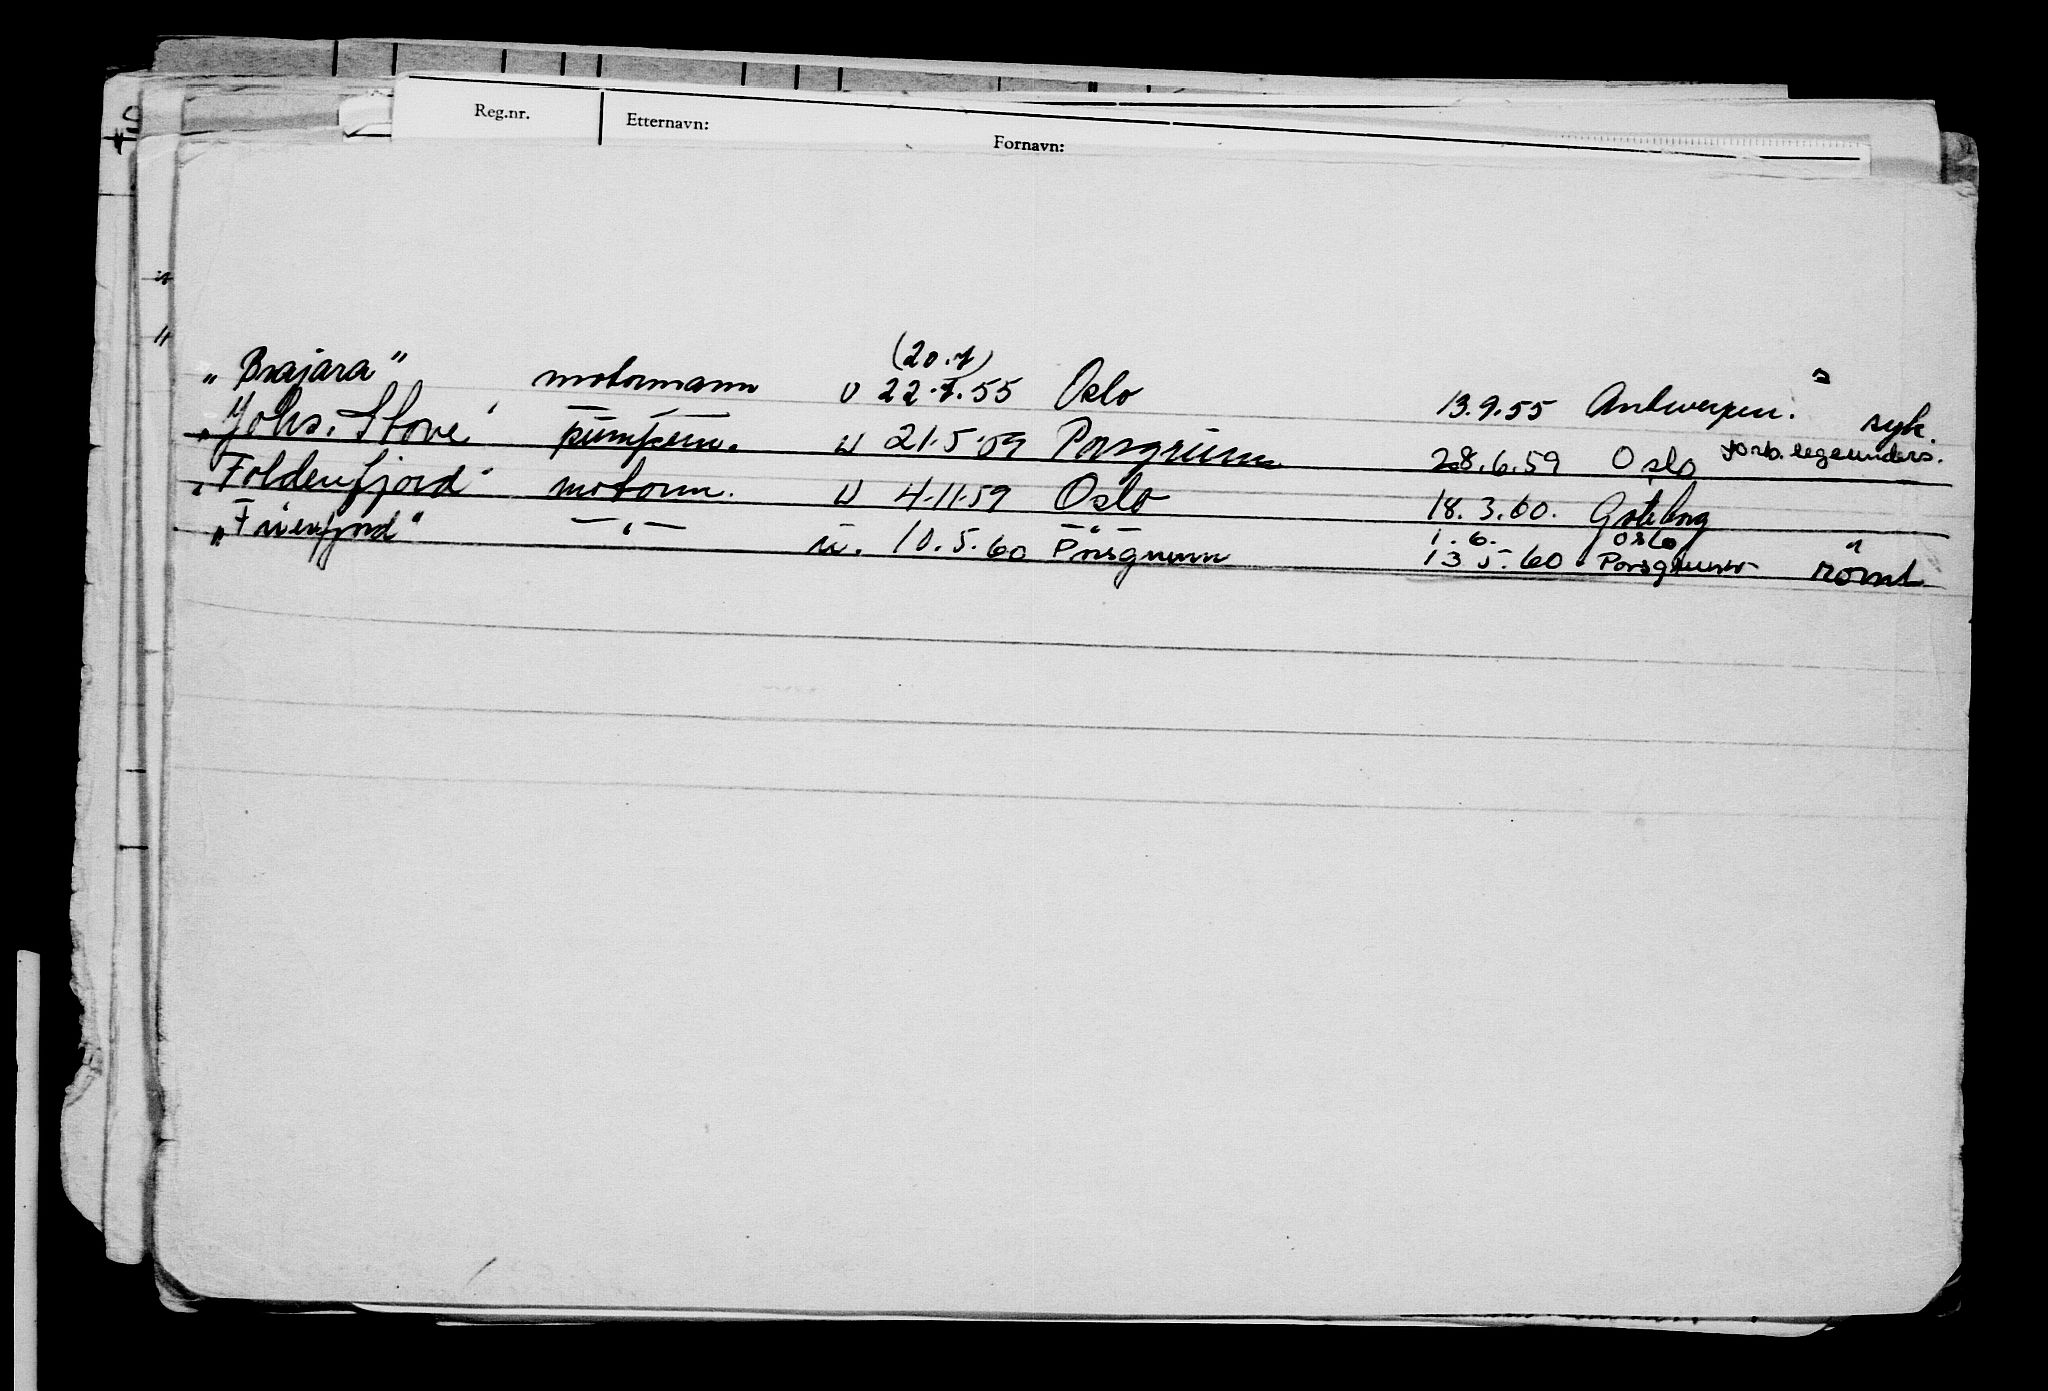 Reg.nr. Etternavn: Fornavn:
(20.7)
„Brajara” motormann U 22.7.55 Oslo 13.9.55 Antwerpen. syk.
„Johs. Stove" —"— pumpem. U 21.5.59 Porsgrunn 28.6.59 Oslo forb. legeunders.
„Foldenfjord" motorm. U 4.11.59 Oslo 18.3.60. Gøteborg
1.6. Oslo
„Frierfjord" —"— U. 10.5.60 Porsgrunn 13.5.60 Porsgrunn rømt